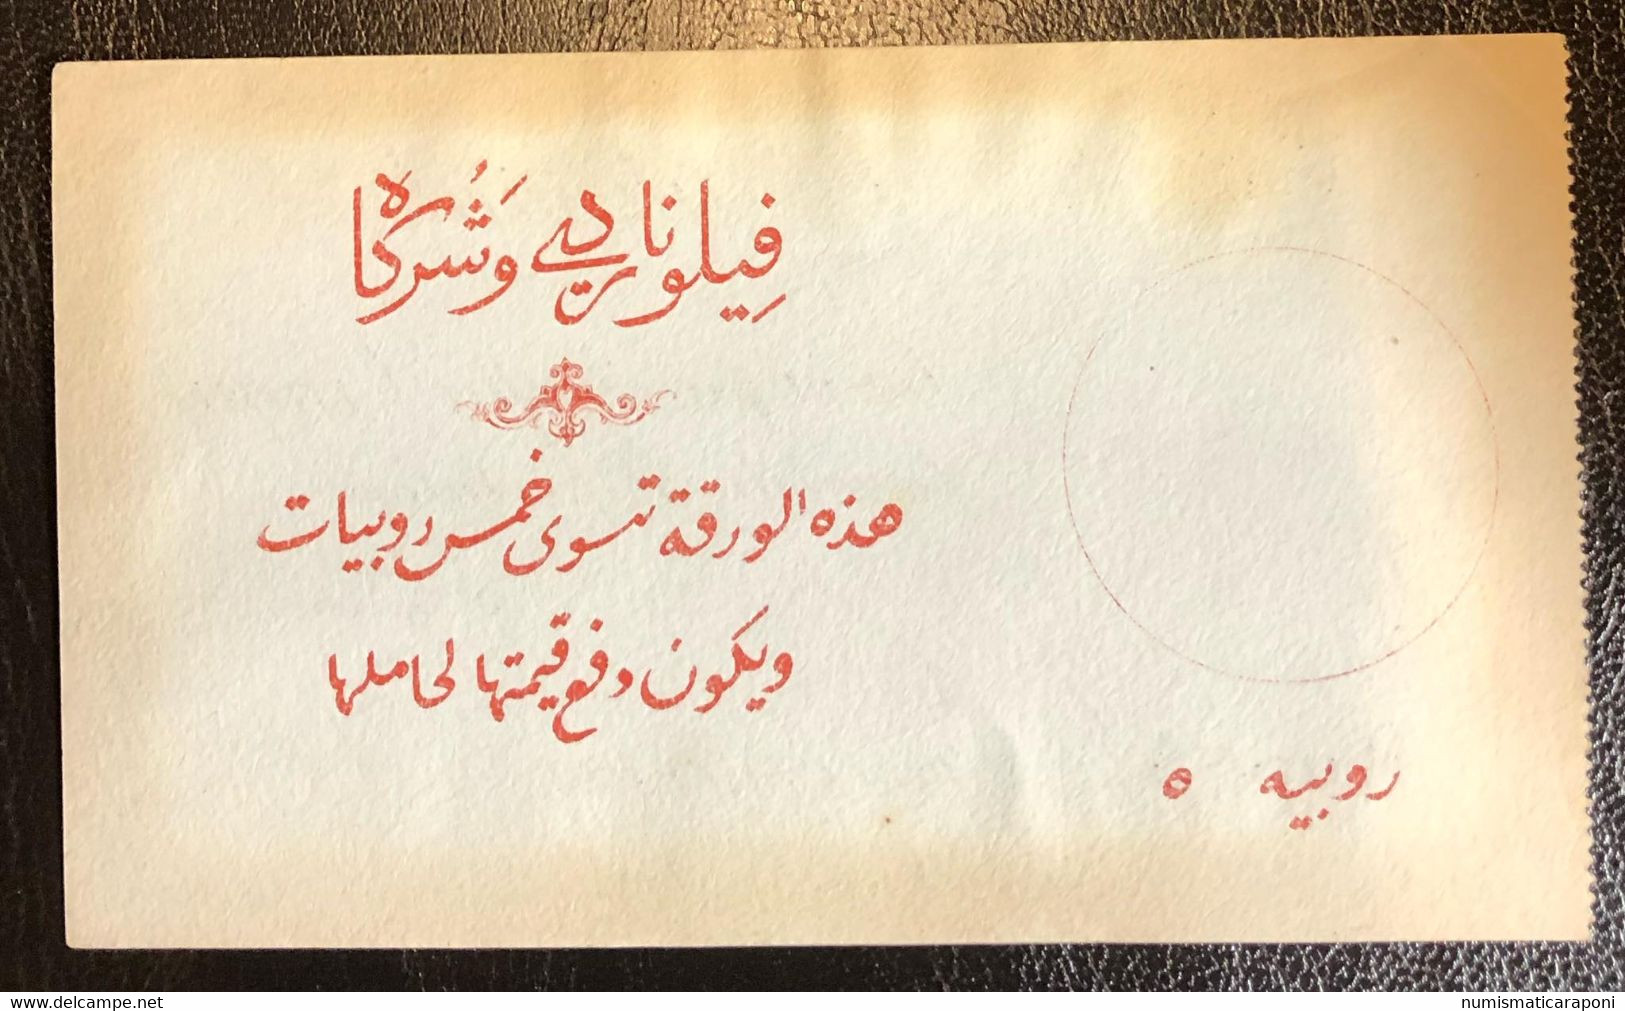 فِيلوناردي وَشُركاه
هذه الورقة تسوى خمس روبيات
ويكون دفع قيمتها لحاملها
روبيه ٥
www.delcampe.net
numismaticaraponi